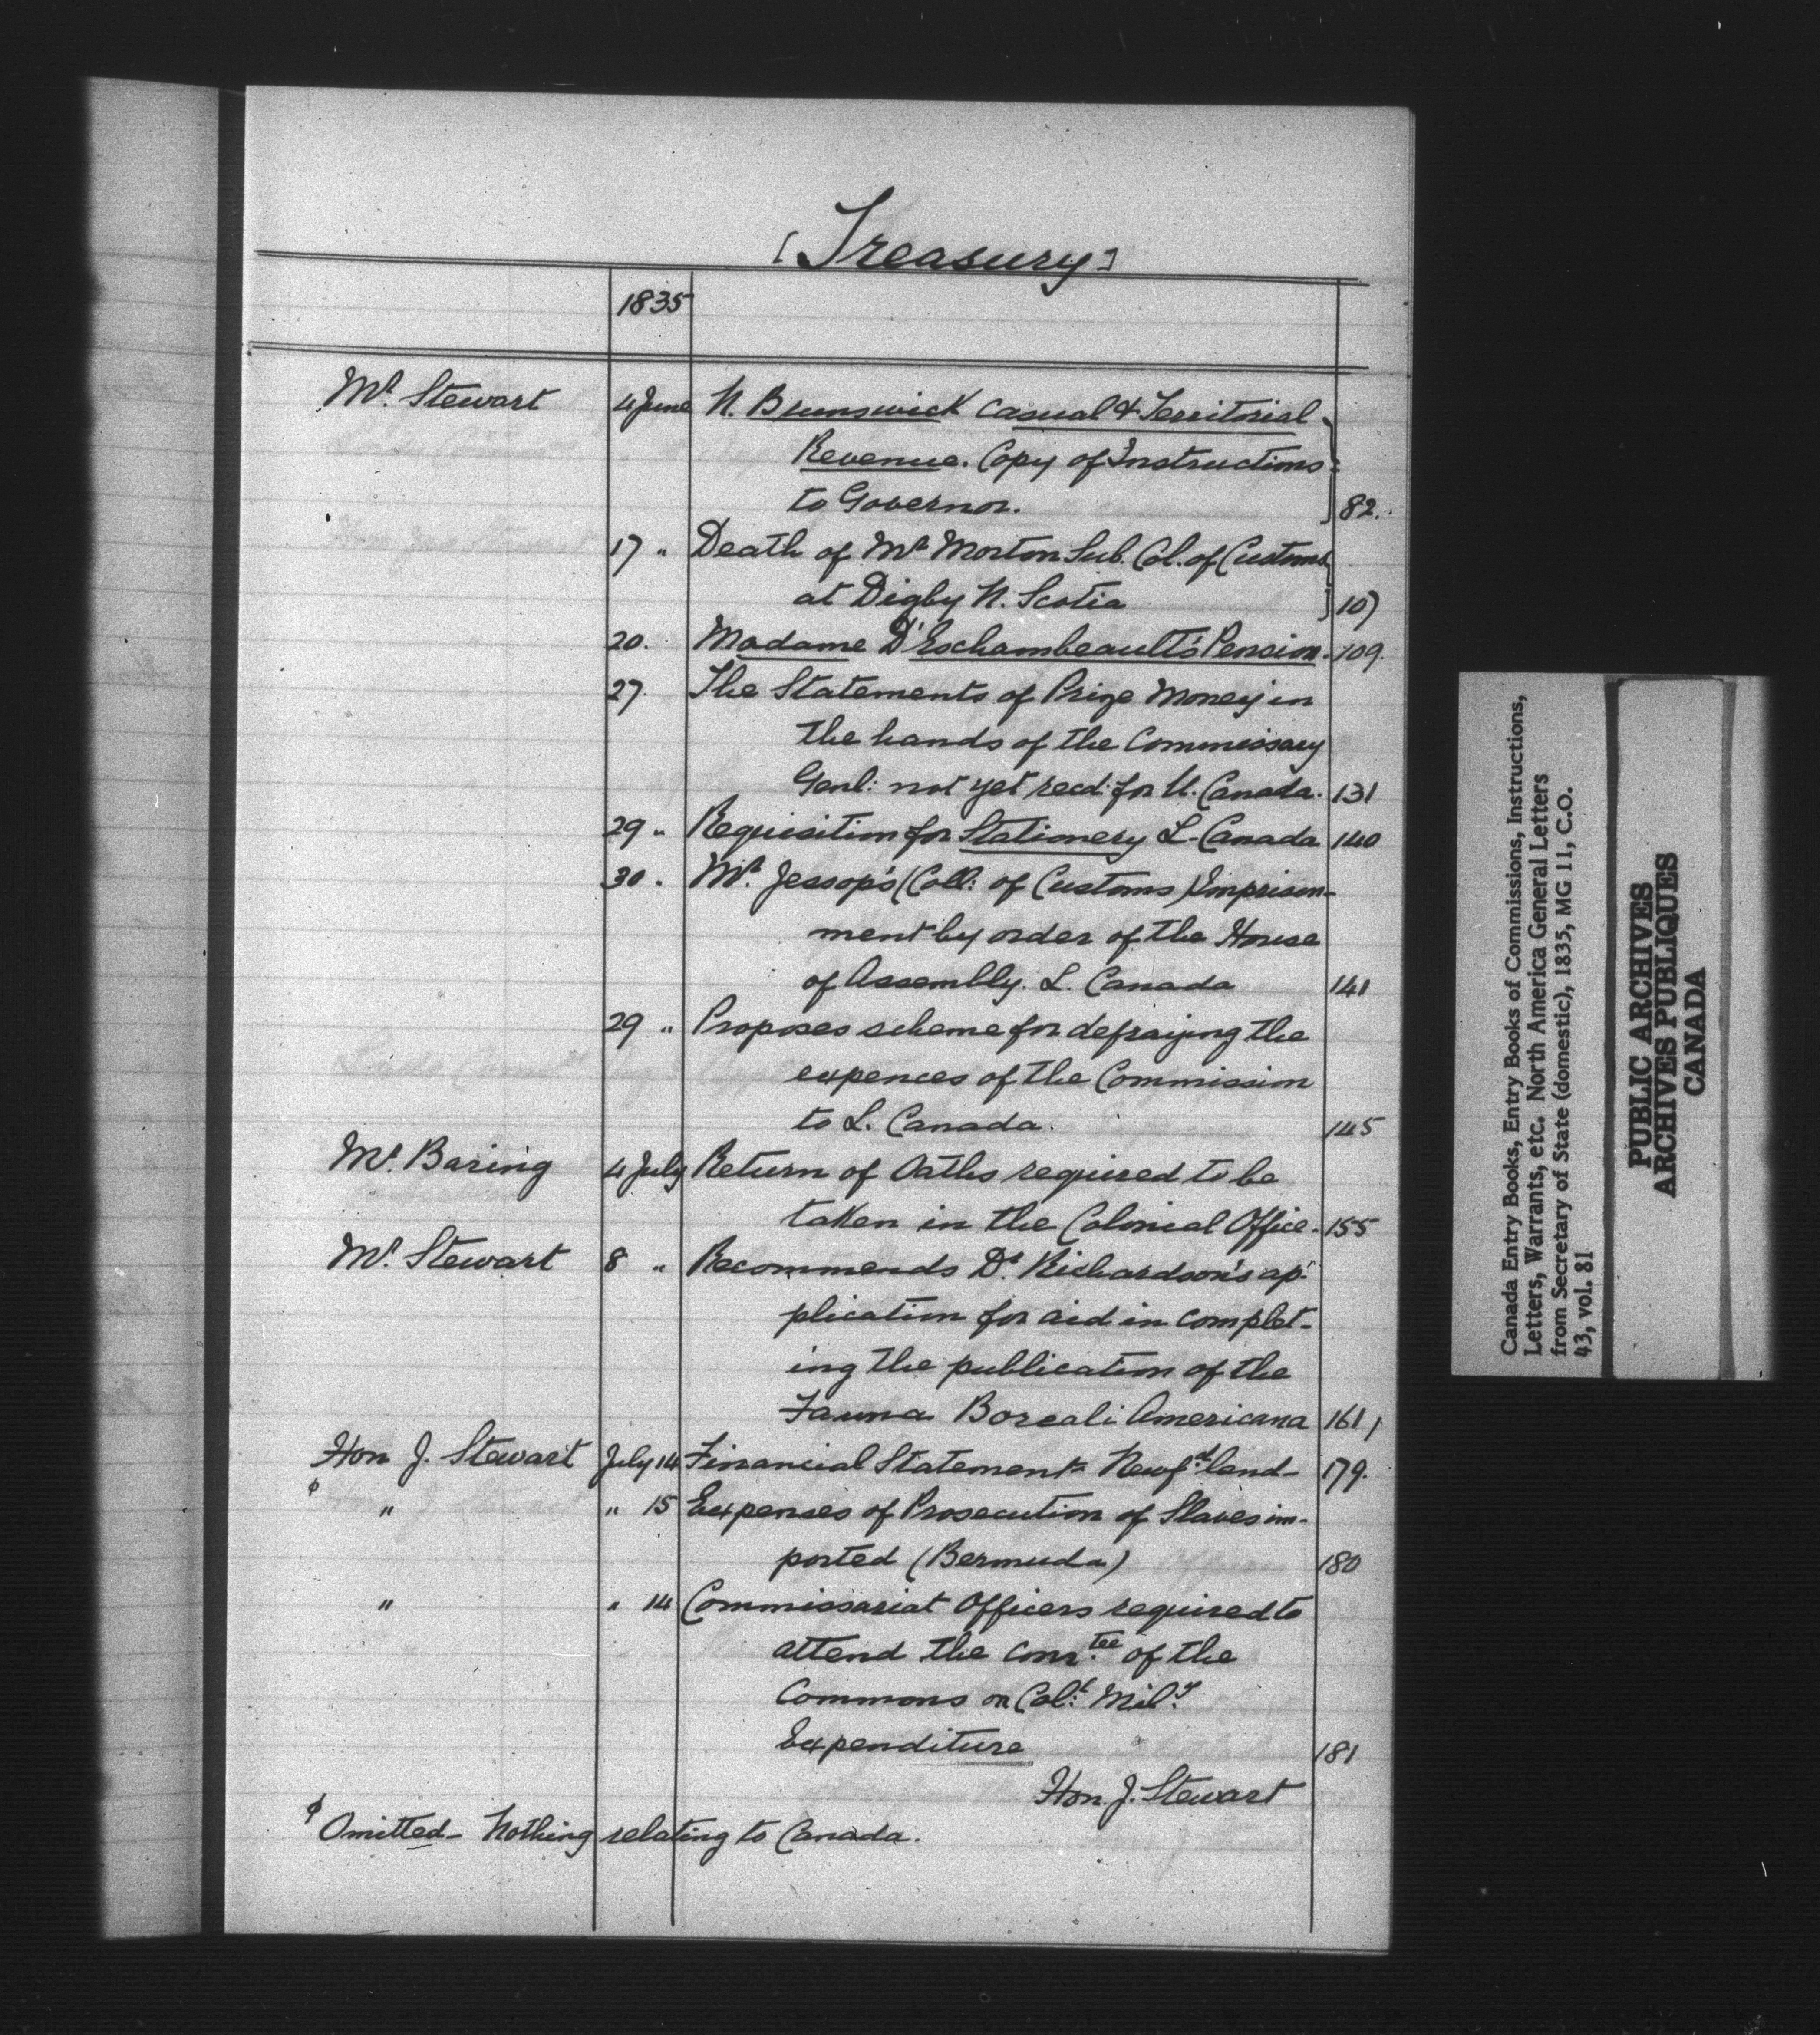 [Treasury]
1835
Mr. Stewart 4 June N. Brunswick Casual & Territorial
Revenue. Copy of Instructions
to Governor. 82.
17 " Death of Mr Morton Sub. Col. of Customs
at Digby N. Scotia 107
20. Madame D'Eschambeault's Pension. 109.
27. The Statements of Prize Money in
the hands of the Commissary
Genl: not yet recd: for U. Canada. 131
29 " Requisition for Stationery L. Canada 140
30 " Mr. Jessop's (Coll: of Customs) Imprison-
ment by order of the House
of Assembly. L. Canada 141
29 " Proposes scheme for defraying the
expences of the Commission
to L. Canada. 145
Mr. Baring 4 July Return of Oaths required to be
taken in the Colonial Office. 155
Mr. Stewart 8 " Recommends Dr. Richardson's ap-
plication for aid in complet-
ing the publication of the
Fauna Boreali Americana 161
Hon J. Stewart July 14 Financial Statement Newfd.land- 179.
ϕ " " 15 Expenses of Prosecution of Slaves im-
ported (Bermuda) 180
" " 14 Commissariat Officers required to
attend the Com.tee of the
Commons on Col:l Mil:y
Expenditure 181
Hon. J. Stewart
ϕ Omitted- Nothing relating to Canada.
Canada Entry Books, Entry Books of Commissions, Instructions,
Letters, Warrants, etc. North America General Letters
from Secretary of State (domestic), 1835, MG 11, C.O.
43, vol. 81
PUBLIC ARCHIVES
ARCHIVES PUBLIQUES
CANADA